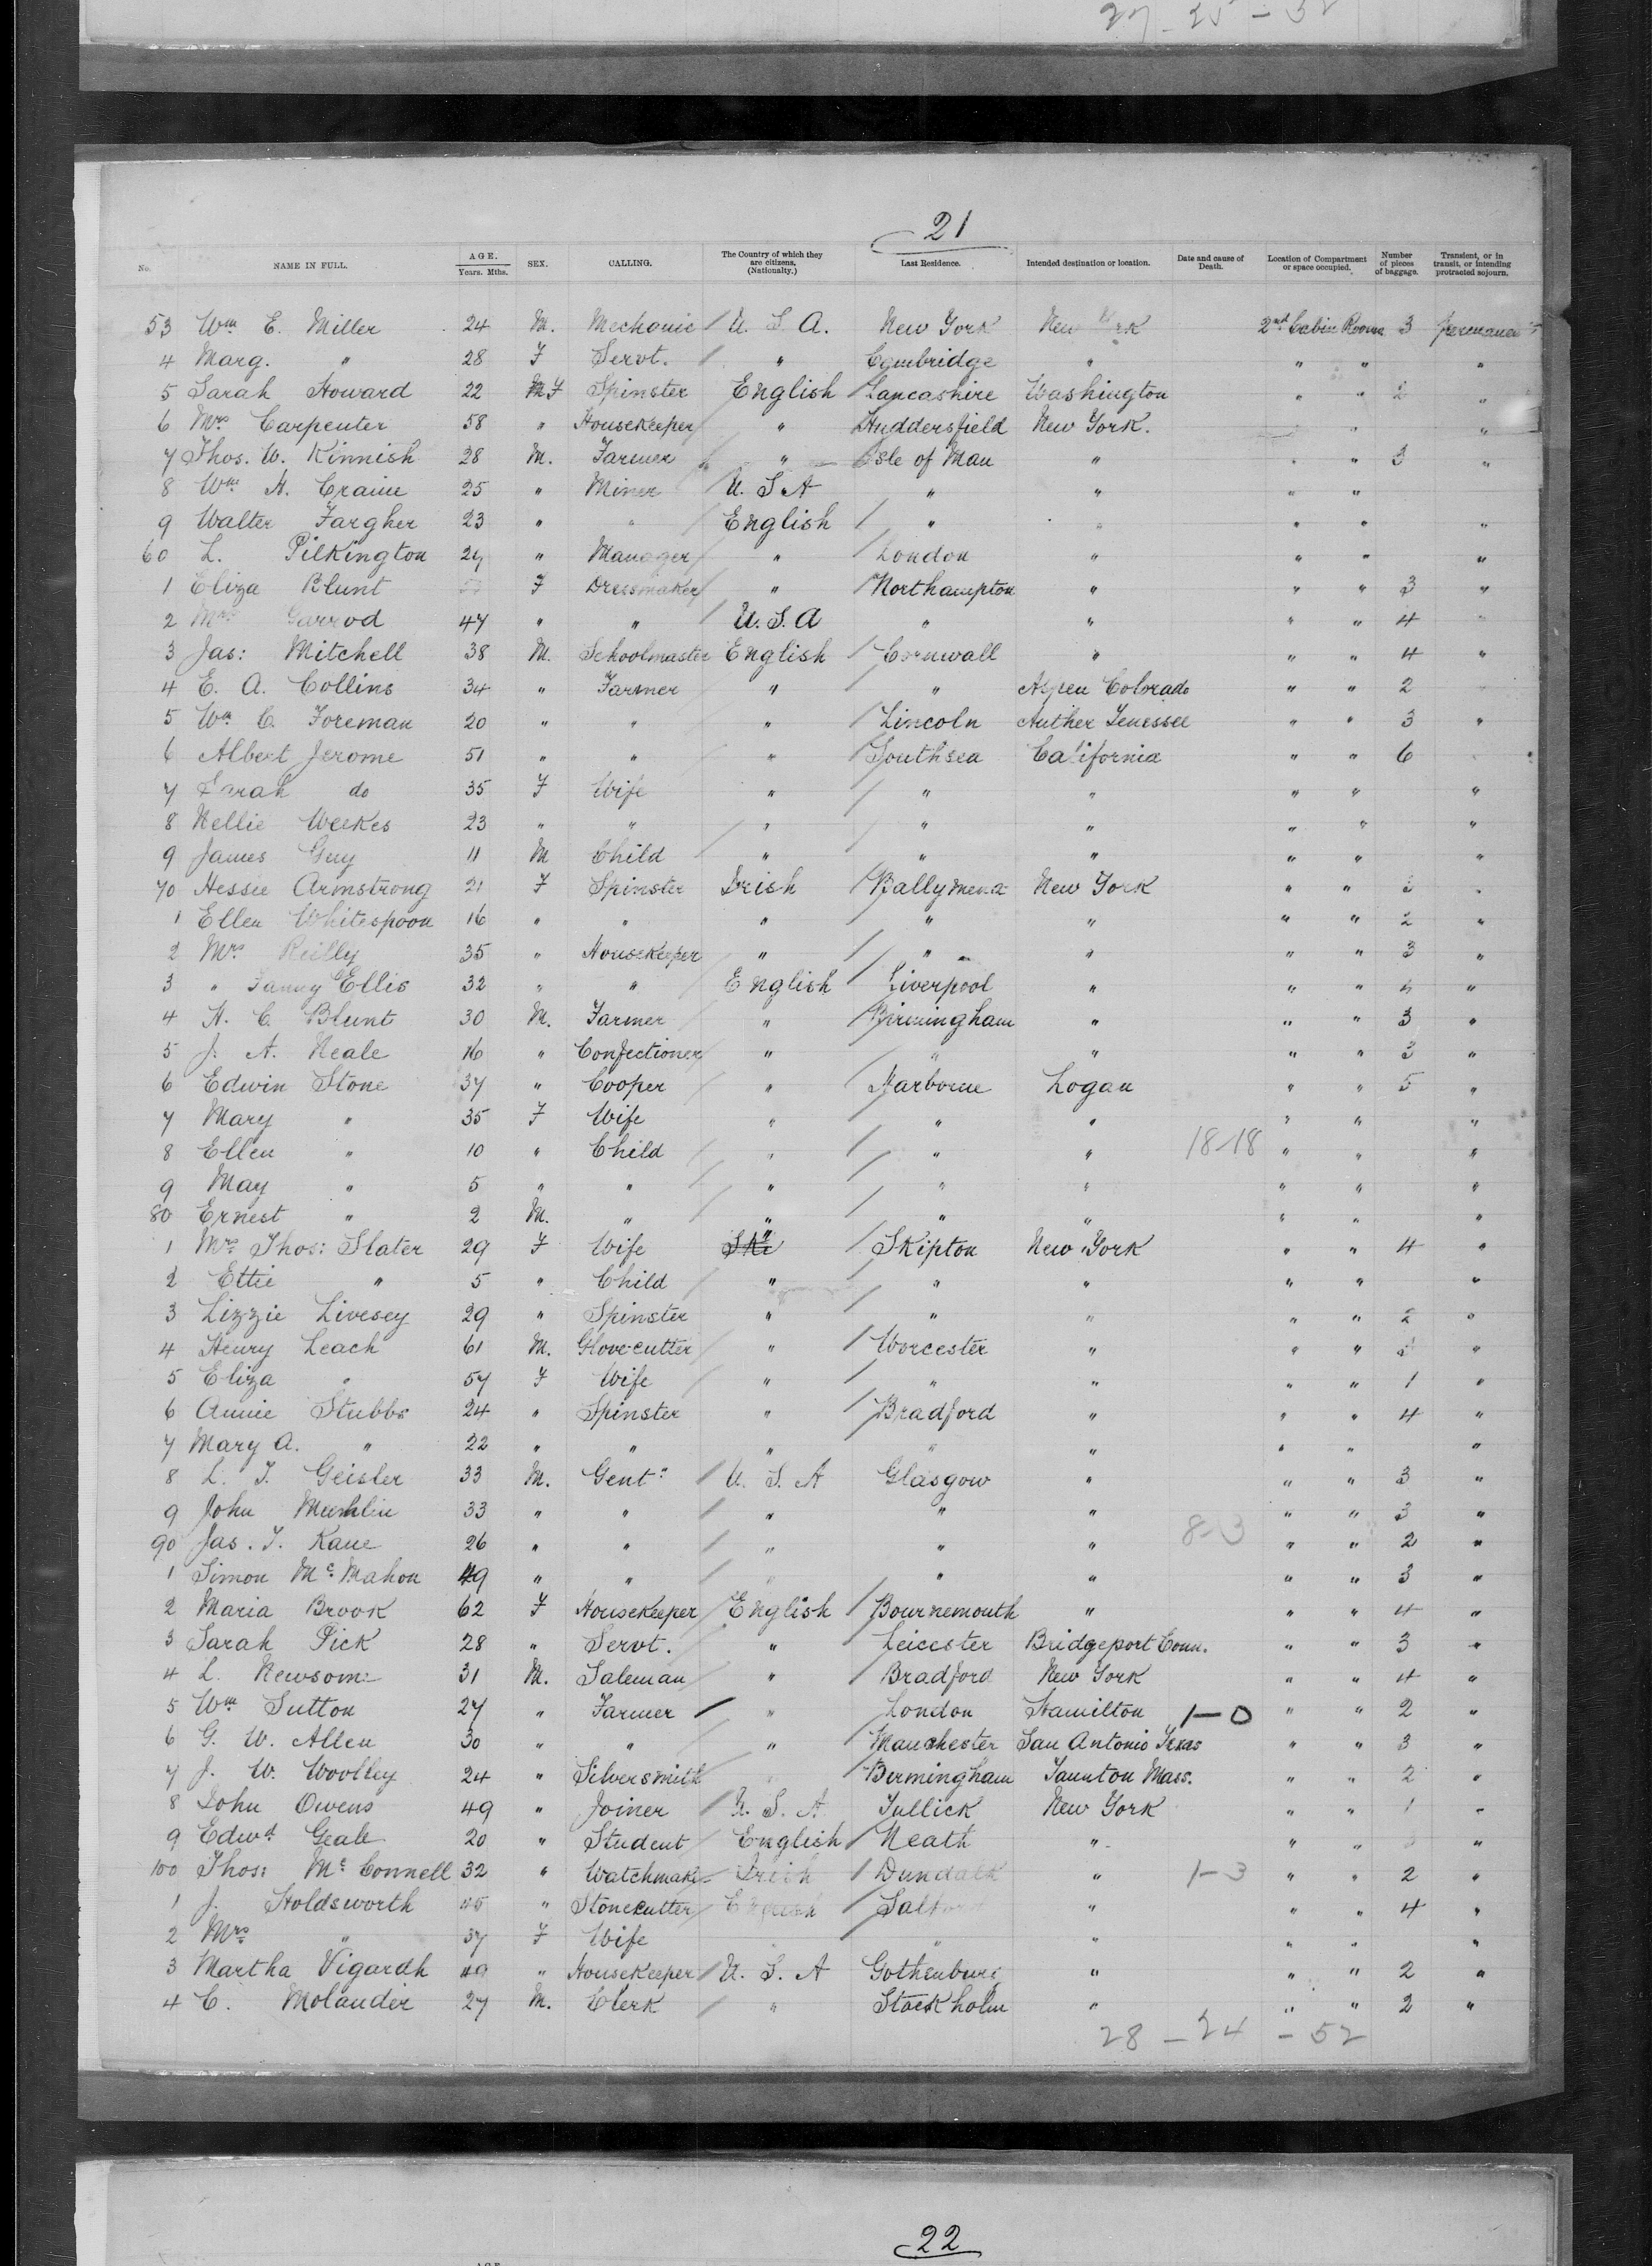 27 - 25 - 52
21
No. NAME IN FULL. AGE. Years. Mths. SEX. CALLING. The Country of which they are citizens. (Nationality.) Last Residence. Intended destination or location. Date and cause of Death. Location of Compartment or space occupied. Number of pieces of baggage. Transient, or in transit, or intending protracted sojourn.
53 Wm E. Miller 24 M. Mechanic / U. S. A. New York New York 2nd Cabin Room 3 Permanent
4 Marg. " 28 F Servt. / " Cambridge " " " "
5 Sarah Howard 22 F Spinster English / Lancashire Washington " " 2 "
6 Mrs Carpenter 58 " Housekeeper / " Huddersfield New York. " " "
7 Thos. W. Kinnish 28 M. Farmer / " Isle of Man " " " 3 "
8 Wm H. Craine 25 " Miner U. S. A " " " "
9 Walter Fargher 23 " " English / " " " " "
60 L. Pilkington 29 " Manager / " London " " " "
1 Eliza Blunt F Dressmaker / " / Northampton " " " 3 "
2 Mrs Garrod 47 " " / U. S. A " " " " 4 "
3 Jas: Mitchell 38 M. Schoolmaster English / Cornwall " " " 4 "
4 E. A. Collins 34 " Farmer " " Aspen Colorado " " 2
5 Wm C. Foreman 20 " " " / Lincoln Auther Tenessee " " 3 "
6 Albert Jerome 51 " " " / Southsea California " " 6 "
7 Sarah do 35 F Wife " / " " " " "
8 Nellie Weekes 23 " " / " / " " " " "
9 James Guy 11 M Child / " / " " " " "
70 Hessie Armstrong 21 F Spinster Irish / Ballymena New York " " 3 "
1 Ellen Whitespoon 16 " " " / " " " " 2 "
2 Mrs Reilly 35 " Housekeeper " / " " " " 3 "
3 " Fanny Ellis 32 " " English / Liverpool " " " 4 "
4 H. C. Blunt 30 M. Farmer " / Birmingham " " " 3 "
5 J. A. Neale 16 " Confectioner / " " " " " 3 "
6 Edwin Stone 37 " Cooper / " / Harborne Logan " " 5 "
7 Mary " 35 F Wife " " " " " "
8 Ellen " 10 " Child / " / " " 18-18 " " "
9 May " 5 " " / " / " " " " "
80 Ernest " 2 M. " / " / " " " " "
1 Mrs Thos: Slater 29 F Wife " / Skipton New York " " 4 "
2 Ettie " 5 " Child / " / " " " " "
3 Lizzie Livesey 29 " Spinster " / " " " " 2 "
4 Henry Leach 61 M. Glove-cutter / " / Worcester " " " "
5 Eliza " 57 F Wife / " / " " " " 1 "
6 Annie Stubbs 24 " Spinster " / Bradford " " " 4 "
7 Mary A. " 22 " " " " " " " "
8 L. T. Geisler 33 M. Gent: / U. S. A Glasgow " " " 3 "
9 John 33 " " / " " " " " 3 "
90 Jas. T. Kane 26 " " / " " " 8-3 " " 2 "
1 Simon Mc Mahon 49 " " / " " " " " 3 "
2 Maria Brook 62 F Housekeeper / English / Bournemouth " " " 4 "
3 Sarah Pick 28 " Servt. / " Leicester Bridgeport Conn. " " 3 "
4 L. Newsome 31 M. Saleman / " Bradford New York " " 4 "
5 Wm Sutton 27 " Farmer / " London Hamilton 1-0 " " 2 "
6 G. W. Allen 30 " " / " Manchester San Antonio Texas " " 3 "
7 J. W. Woolley 24 " Silversmith Birmingham Taunton Mass. " " 2 "
8 John Owens 49 " Joiner / U. S. A Tullick New York " " 1 "
9 Edwd Geale 20 " Student / English / Neath " " " "
100 Thos: Mc Connell 32 " Watchmaker Irish / Dundalk " 1-3 " " 2 "
1 J. Holdsworth 45 " Stonecutter / English / " " " 4 "
2 Mrs " 37 F Wife " " " " "
3 Martha Vigardh 49 " Housekeeper / U. S. A Gothenburg " " " 2 "
4 C. Molander 27 M. Clerk / " Stockholm " " " 2 "
28 - 24 - 52
22